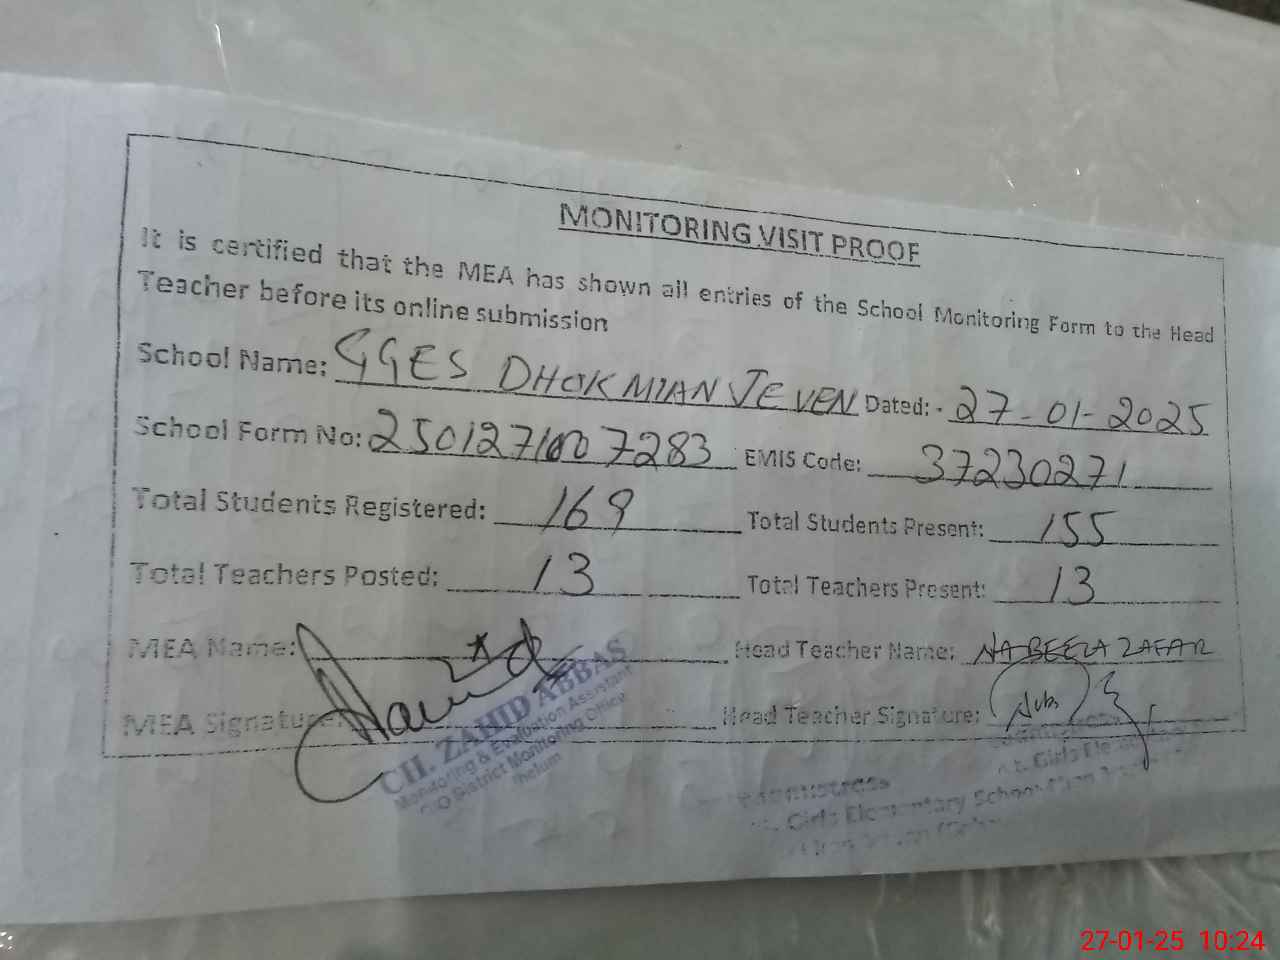 MONITORING VISIT PROOF
It is certified that the MEA has shown all entries of the School Monitoring Form to the Head
Teacher before its online submission
School Name: GGES DHOK MIAN JEVEN Dated: - 27-01-2025
School Form No: 7283 EMIS Code: 37230271
Total Students Registered: 169 Total Students Present: 155
Total Teachers Posted: 13 Total Teachers Present: 13
MEA Name: Head Teacher Name: NABEELA ZAFAR
MEA Signature: Head Teacher Signature:
CH. ZAHID ABBAS
Monitoring & Evaluation Assistant
O/O District Monitoring Office
Jhelum
Girls Elementary School
27-01-25 10:24